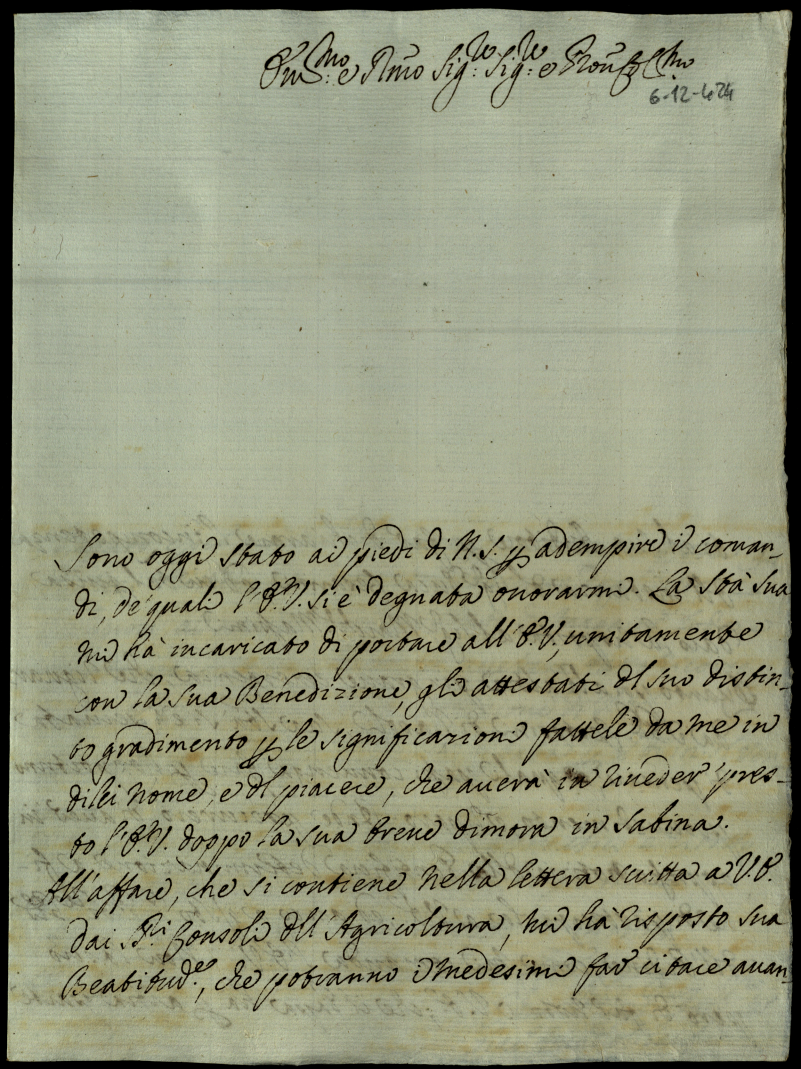 Em.mo e Rmo Sig.re Sig.re e Pron Col.mo
6-12-424
Sono oggi stato ai piedi di N.S. p adempire i coman-
di, de' quali l'E.V. si è degnata onorarmi. La Stà Sua
mi hà incaricato di portare all'E.V., unitamente
con la sua Benedizione, gli attestati del suo distin-
to gradimento p le significazioni fattele da me in
di lei nome, e del piacere, che averà in riveder' pres-
to l'E.V. doppo la sua breve dimora in Sabina.
All'affare, che si contiene nella lettera scritta a V.E.
dai SS.ri Consoli dell'Agricoltura, mi hà risposto Sua
Beatitud.e, che potranno i medesimi far citare avan-